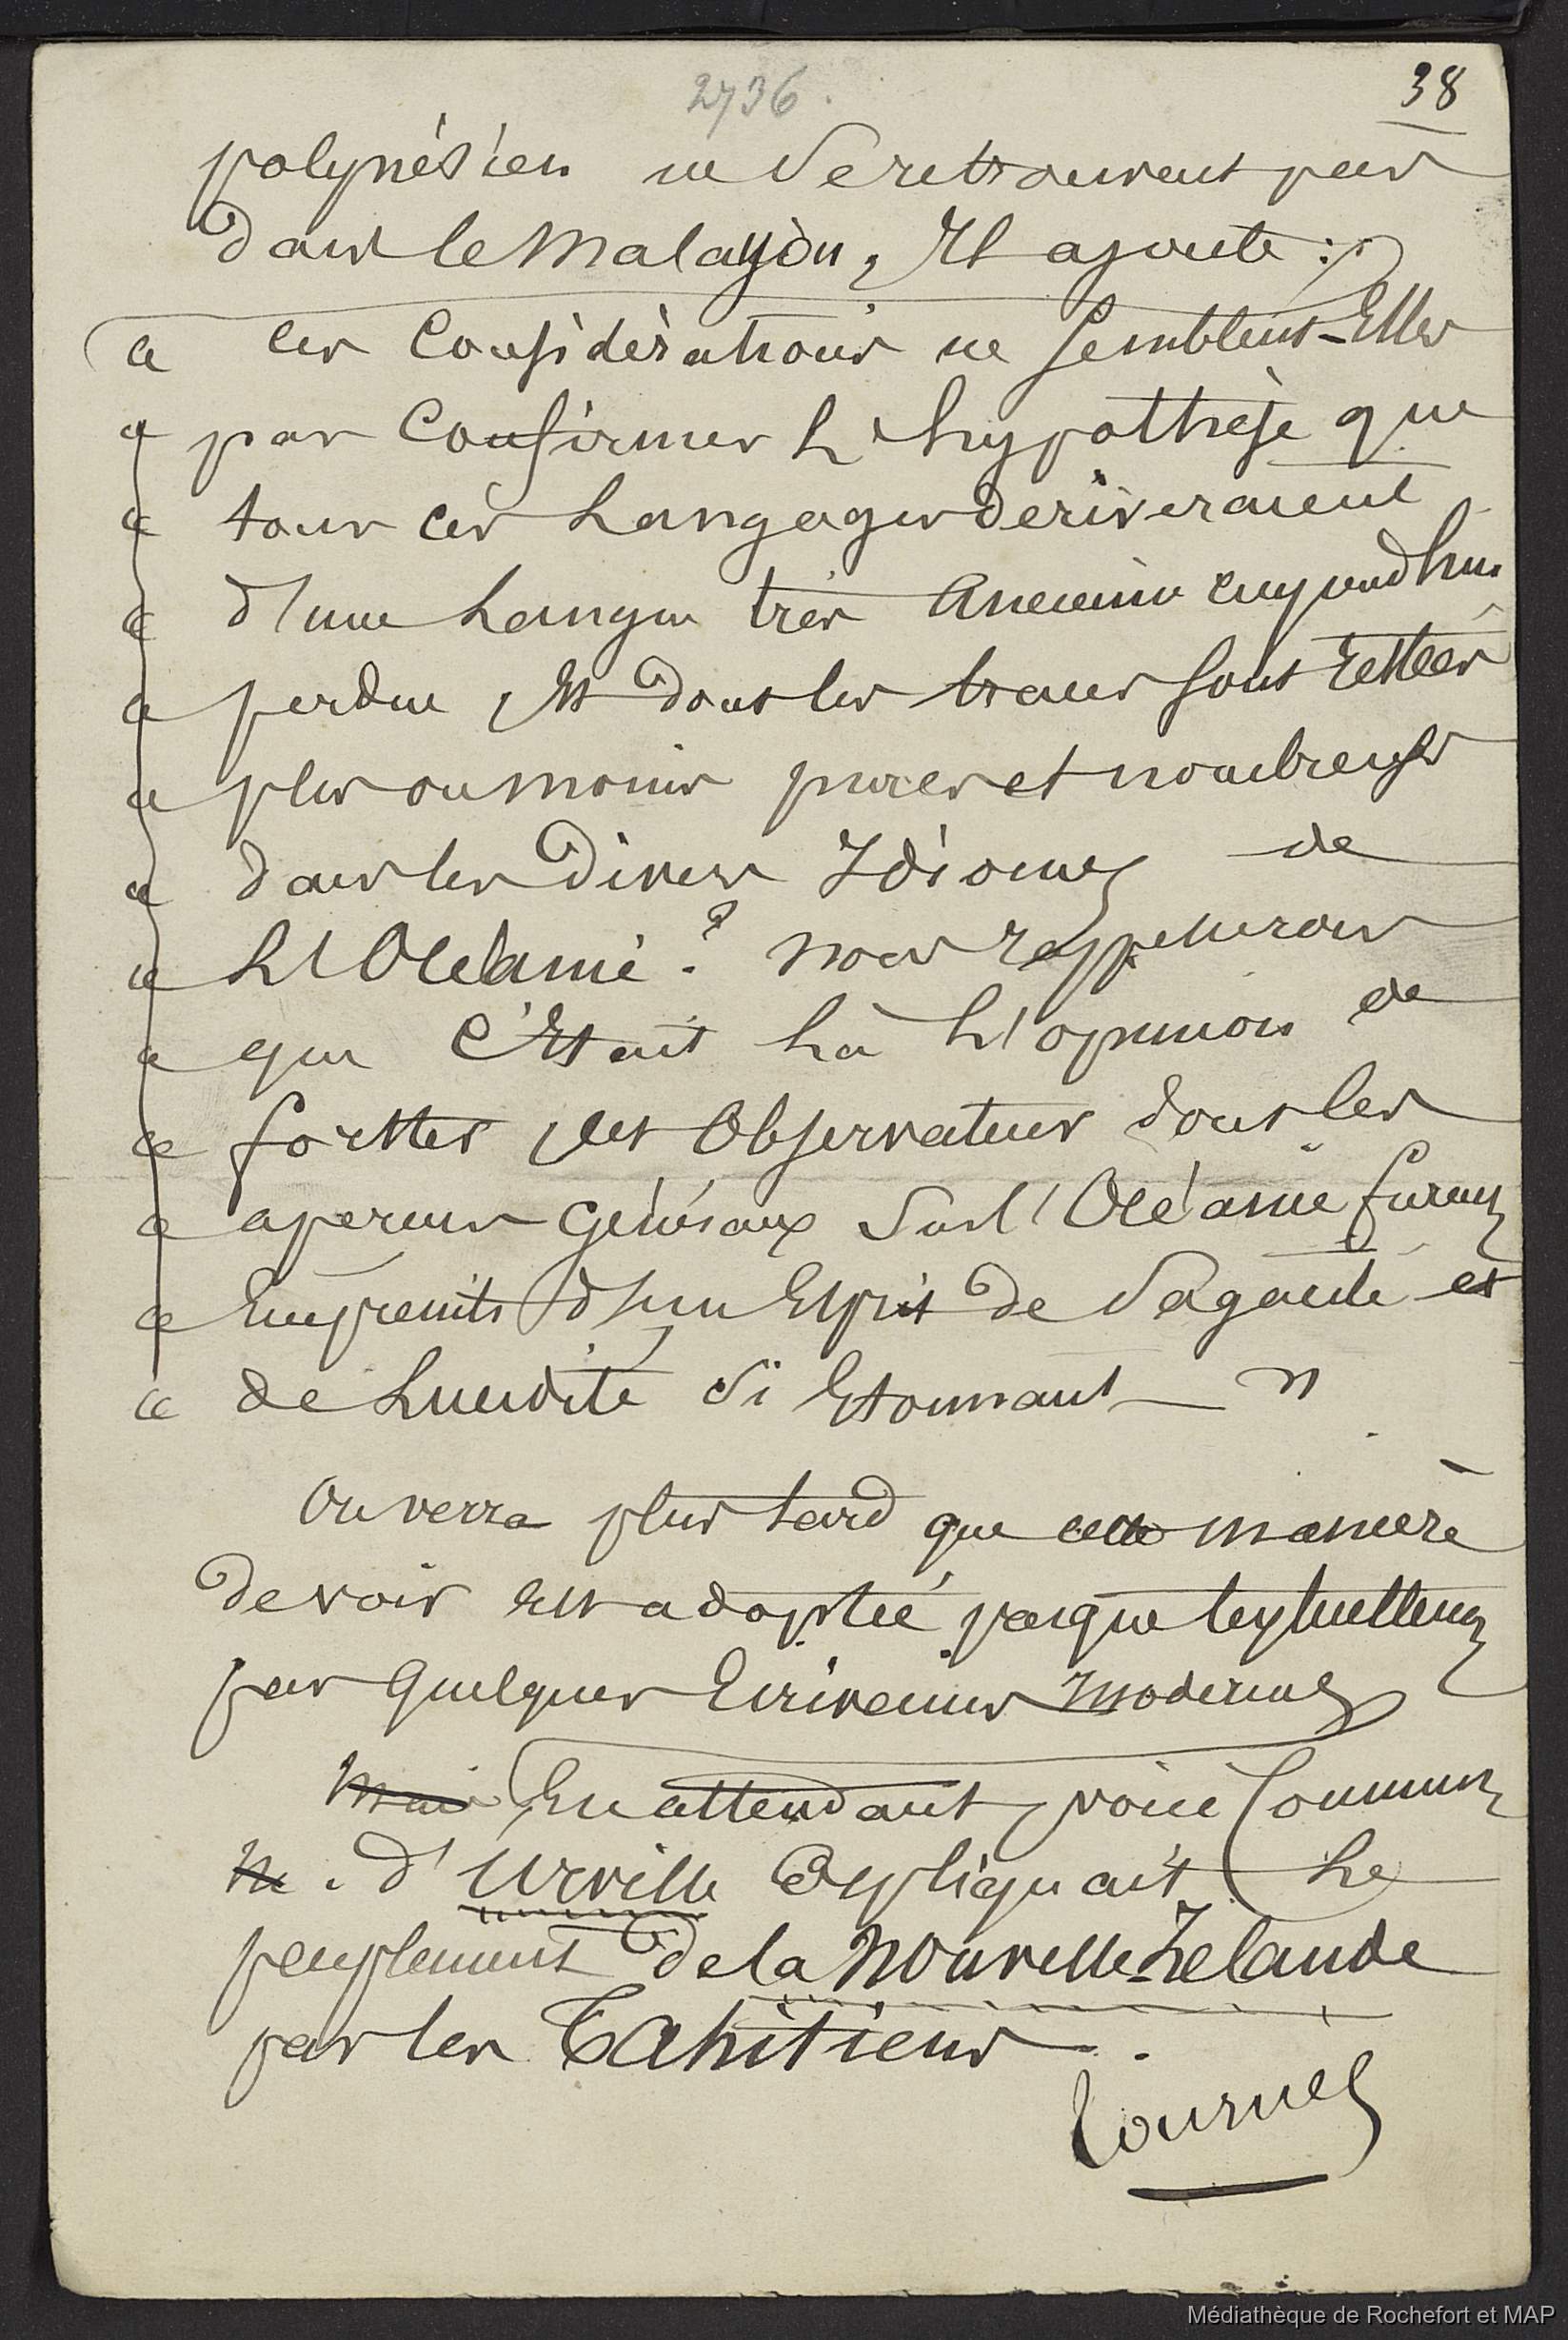 2736.
38
polynésien ne se retrouvent pas
dans le malayou, Il ajoute :
« ces Considérations ne semblent-Elles
« pas Confirmer L'hypothèse que
« tous ces Langages deriveraient
« d'une Langue très Ancienne aujourd'hui
« perdue, Et dont les traces sont restées
« plus ou moins pures et nombreuses
« dans les Divers Idiomes de
« L'Océanie ? nous rappellerons
« que C'Etait Là L'opinion de
« forster, cet Observateur dont les
« aperçus Généraux sur l'Océanie furent
« Empreints d'un Esprit de Sagacité et
« de Lucidité si Etonnant — »
On verra plus tard que cette manière
de voir est adoptée presque textuellement
par quelques Ecrivains modernes
Mais En attendant, voici Comment
M. d'Urville Expliquait Le
peuplement de la Nouvelle-Zelande
par les Tahitiens.
Tournez
Médiathèque de Rochefort et MAP